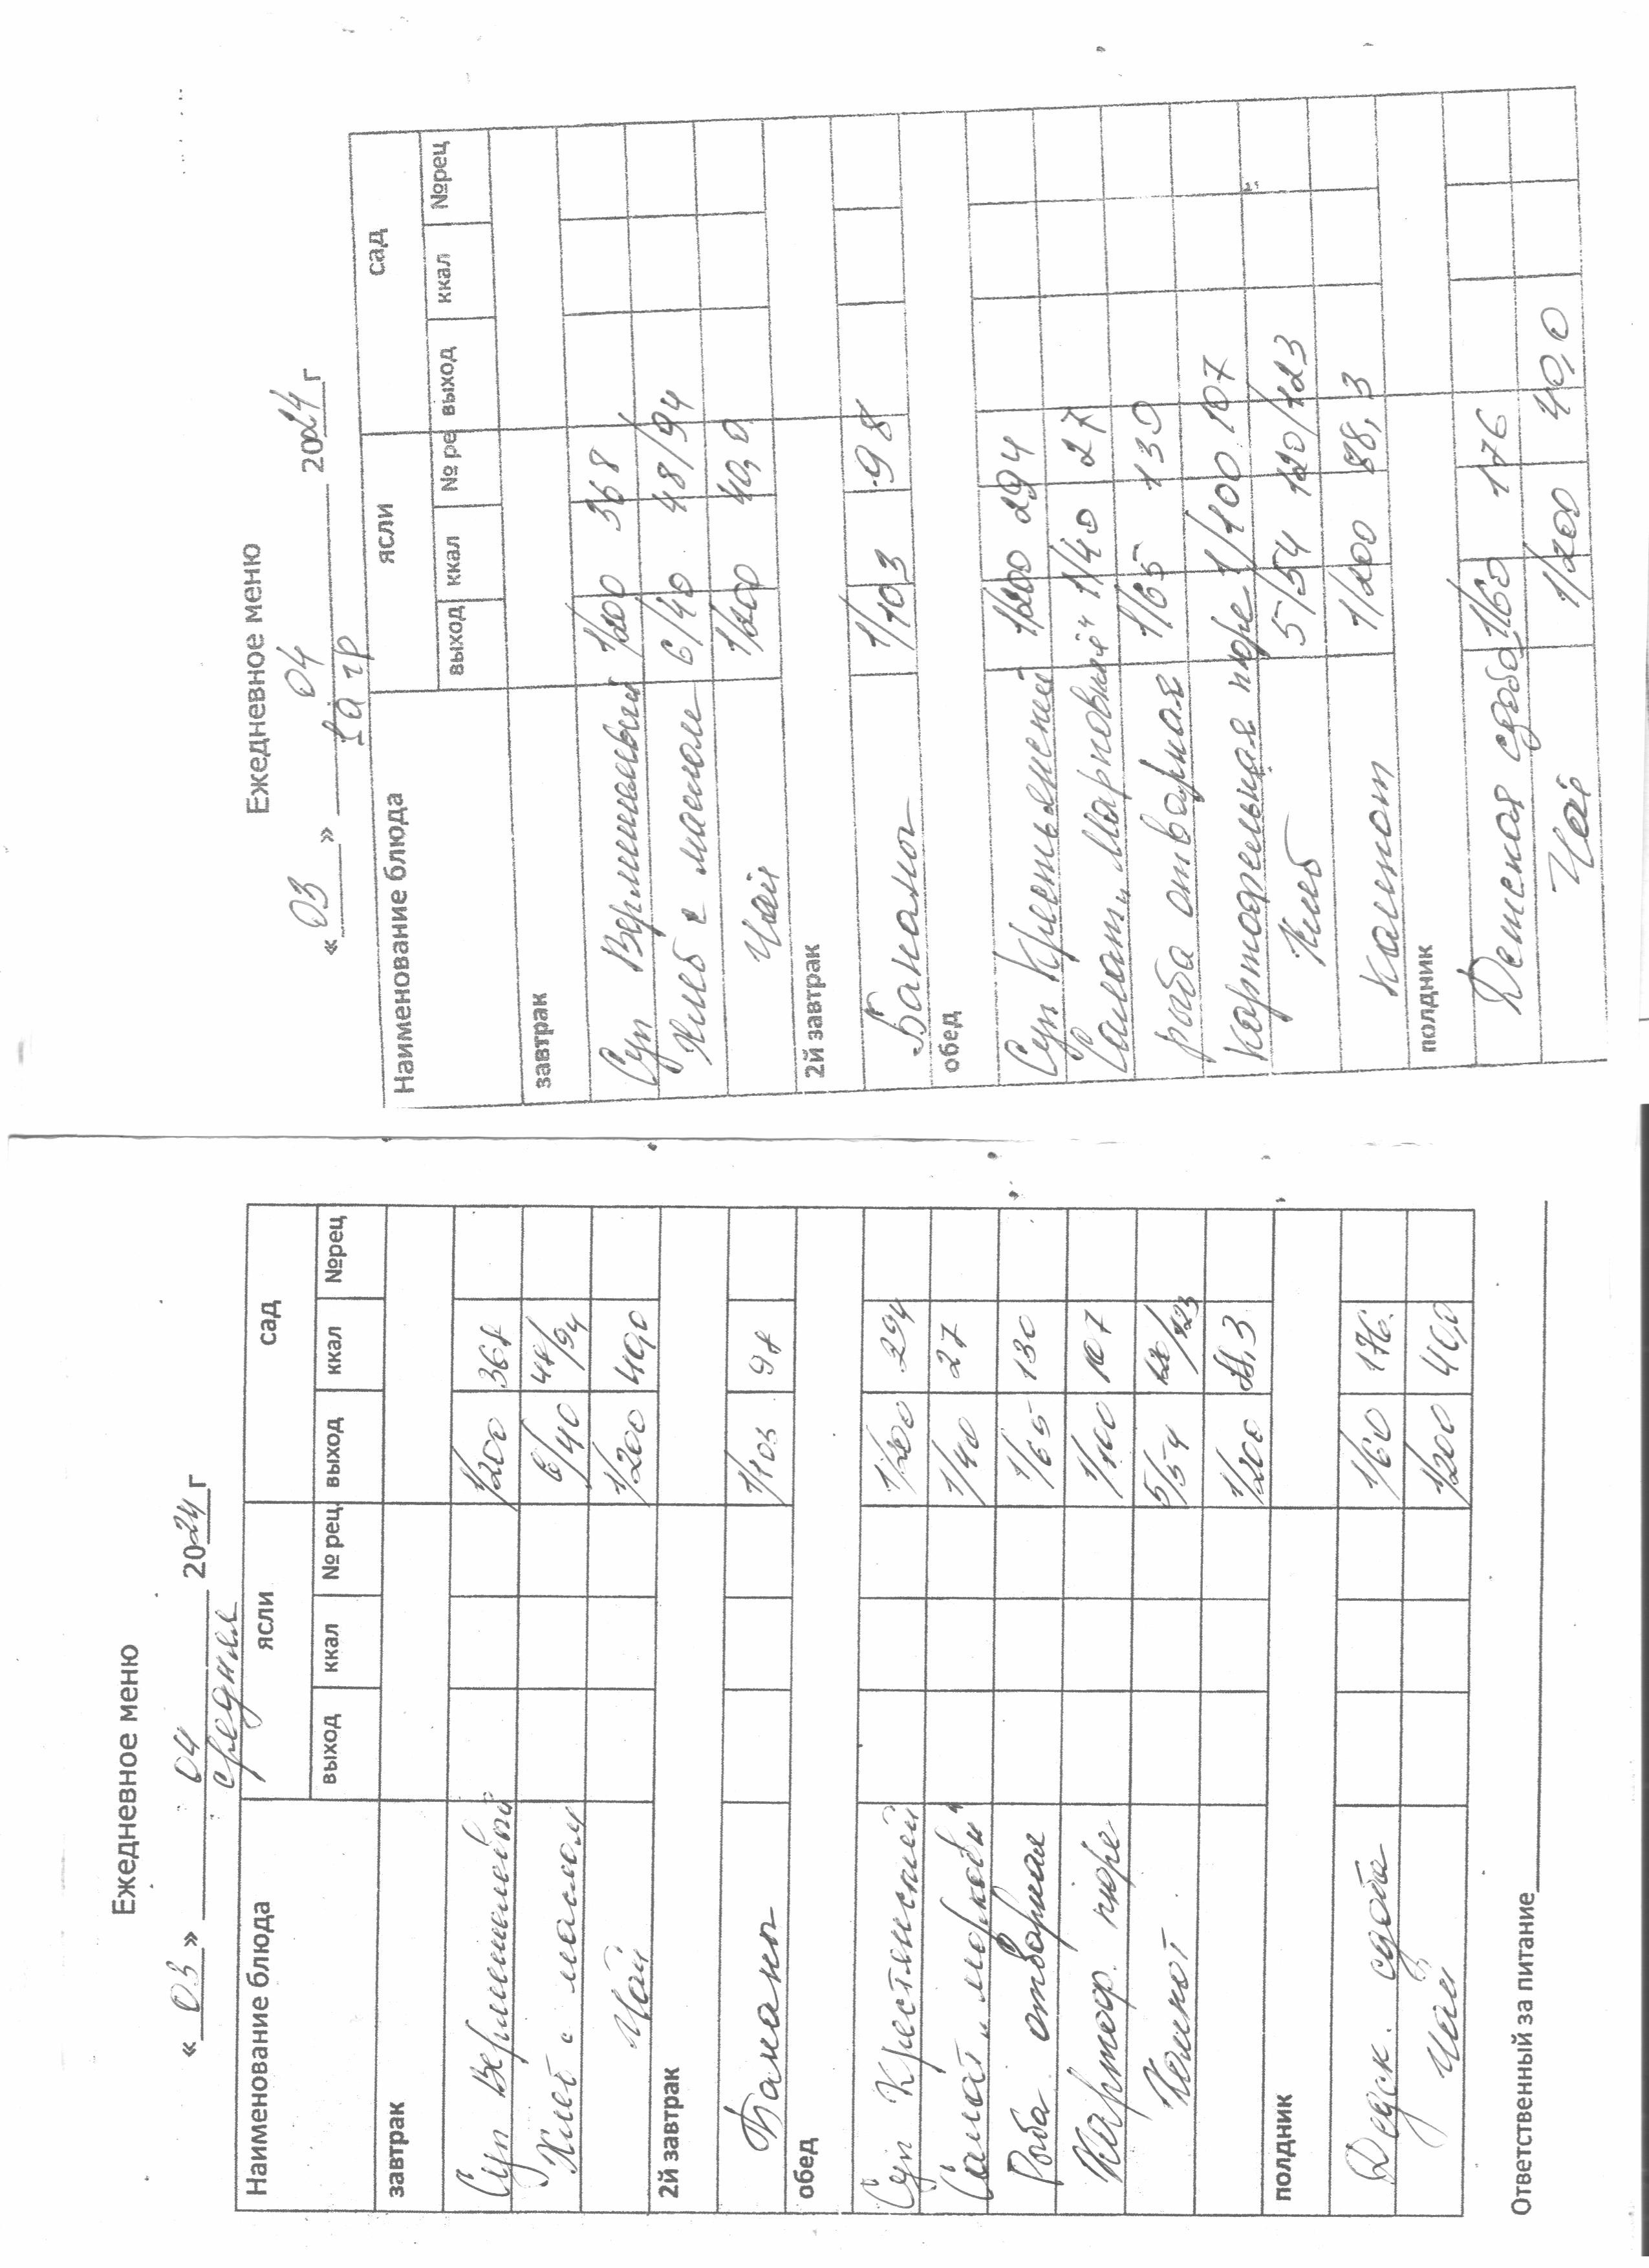 Ежедневное меню
« 03 » 04 2024 г
средняя
Наименование блюда ясли сад
выход ккал № рец выход ккал №рец
завтрак
Суп Вермишелевый 1/200 368
Хлеб с маслом 6/40 48/94
Чай 1/200 40,0
2й завтрак
Бананы 1/103 98
обед
Суп Крестьянский 1/200 294
Салат „ 1/40 27
Рыба отварная 1/65 130
Картоф. пюре 1/100 107
Компот 5/54 120/123
1/200 88,3
полдник
сдоба 1/60 176.
Чай 1/200 40,0
Ответственный за питание
Ежедневное меню
« 03 » 04 2024 г
гр
Наименование блюда ясли сад
выход ккал № ре выход ккал №рец
завтрак
Суп Вермишелевый 1/200 368
Хлеб с маслом 6/40 48/94
Чай 1/200 40,0
2й завтрак
Бананы 1/103 98
обед
Суп Крестьянский 1/200 294
Салат „ Морковный“ 1/40 27
рыба отварная 1/65 130
Картофельная пюре 1/100 107
Хлеб 5/54 120/123
Компот 1/200 88,3
полдник
Детская сдоба 1/60 176
Чай 1/200 40,0